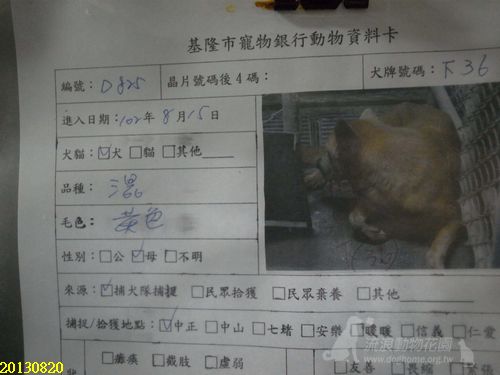 基隆市寵物銀行動物資料卡
編號：D825 晶片號碼後4碼： 犬牌號碼：下36
進入日期：102年8月15日
犬貓：☑犬 □貓 □其他
品種：混
毛色：黃色
性別：□公 ☑母 □不明
來源：☑捕犬隊捕捉 □民眾拾獲 □民眾棄養 □其他
捕捉/拾獲地點：☑中正 □中山 □七堵 □安樂 □暖暖 □信義 □仁愛
□癱瘓 □截肢 □虛弱 □友善 □畏縮 □緊張
流浪動物花園
www.doghome.org.tw
20130820